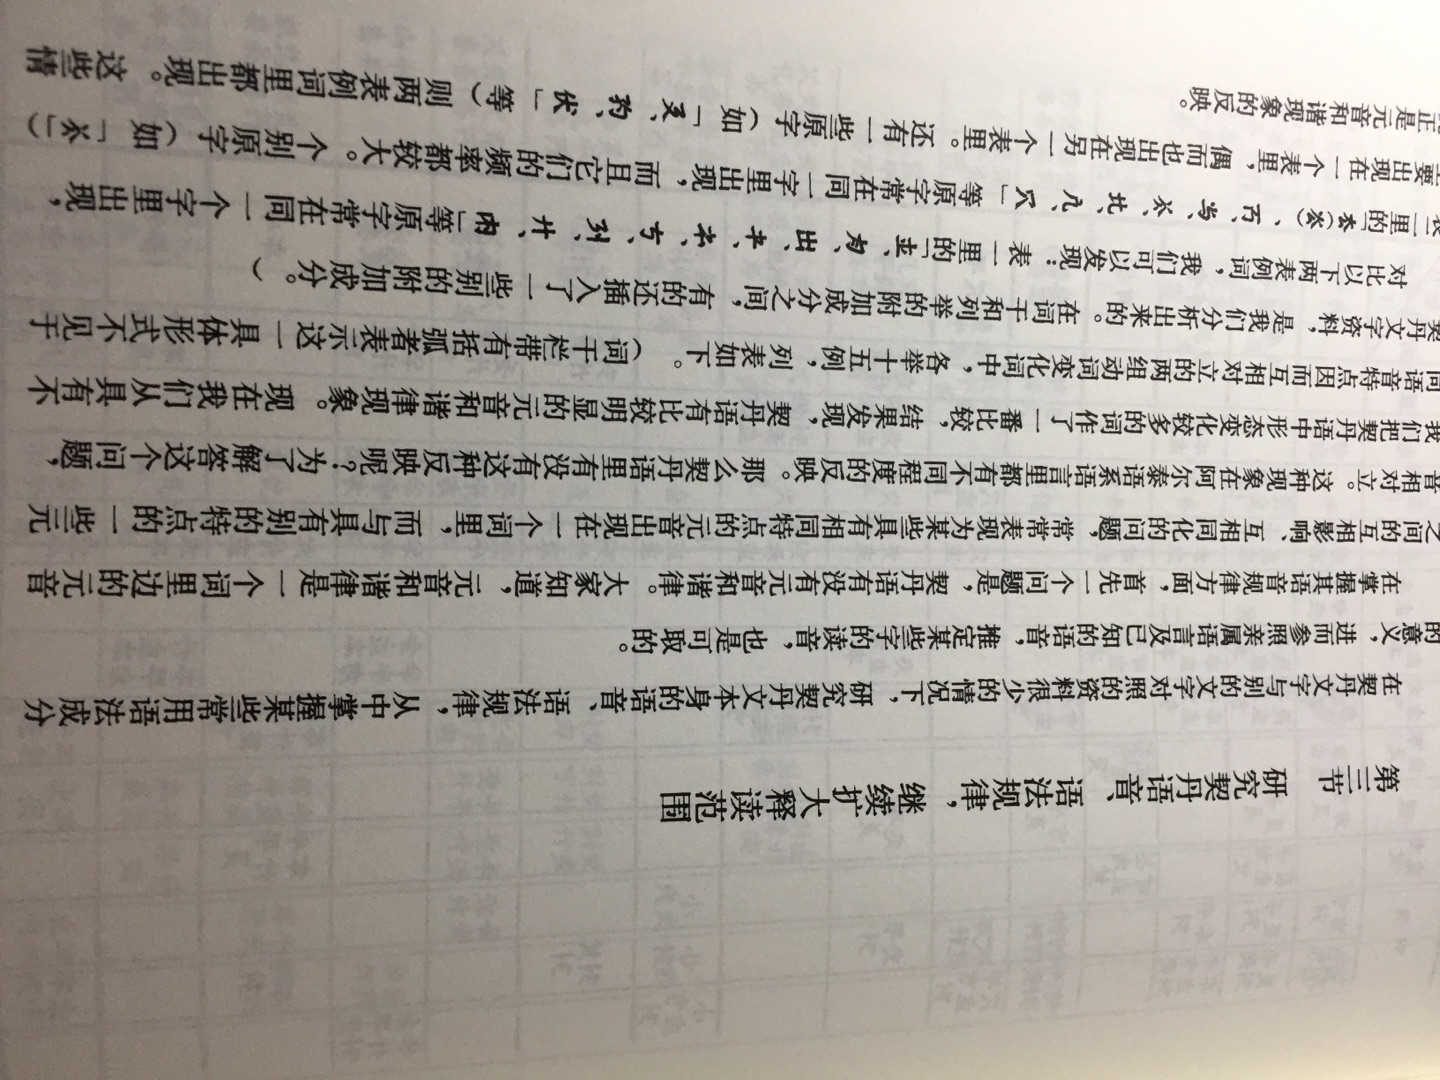 第三节 研究契丹语音、语法规律,
继续扩大释读范围
在契丹文字与别的文字对照的资料很少的情况下,研究契丹文本身的语音、语法规律,从中掌握某些常用语法成分
的意义,进而参照亲属语言及已知的语音,推定某些字的读音,也是可取的。
在掌握其语音规律方面,首先一个问题是,契丹语有没有元音和谐律。大家知道,元音和谐律是一个词里边的元音
之间的互相影响、互相同化的问题,常常表现为某些具有相同特点的元音出现在一个词里,而与具有别的特点的一些元
音相对立。这种现象在阿尔泰语系语言里都有不同程度的反映。那么契丹语里有没有这种反映呢?为了解答这个问题,
我们把契丹语中形态变化较多的词作了一番比较,结果发现,契丹语有比较明显的元音和谐律现象。现在我们从具有不
同语音特点因而互相对立的两组动词变化词中,各举十五例,列表如下。(词干栏带有括弧者表示这一具体形式不见于
契丹文字资料,是我们分析出来的。在词干和列举的附加成分之间,有的还插入了一些别的附加成分。)
对比以下两表例词,我们可以发现:表一里的「」等原字常在同一个字里出现,
里的「」等原字常在同一字里出现,而且它们的频率都较大。个别原字(如「」)
主要出现在一个表里,偶而也出现在另一个表里。还有一些原字(如「」等)则两表例词里都出现。这些情
正是元音和谐现象的反映。